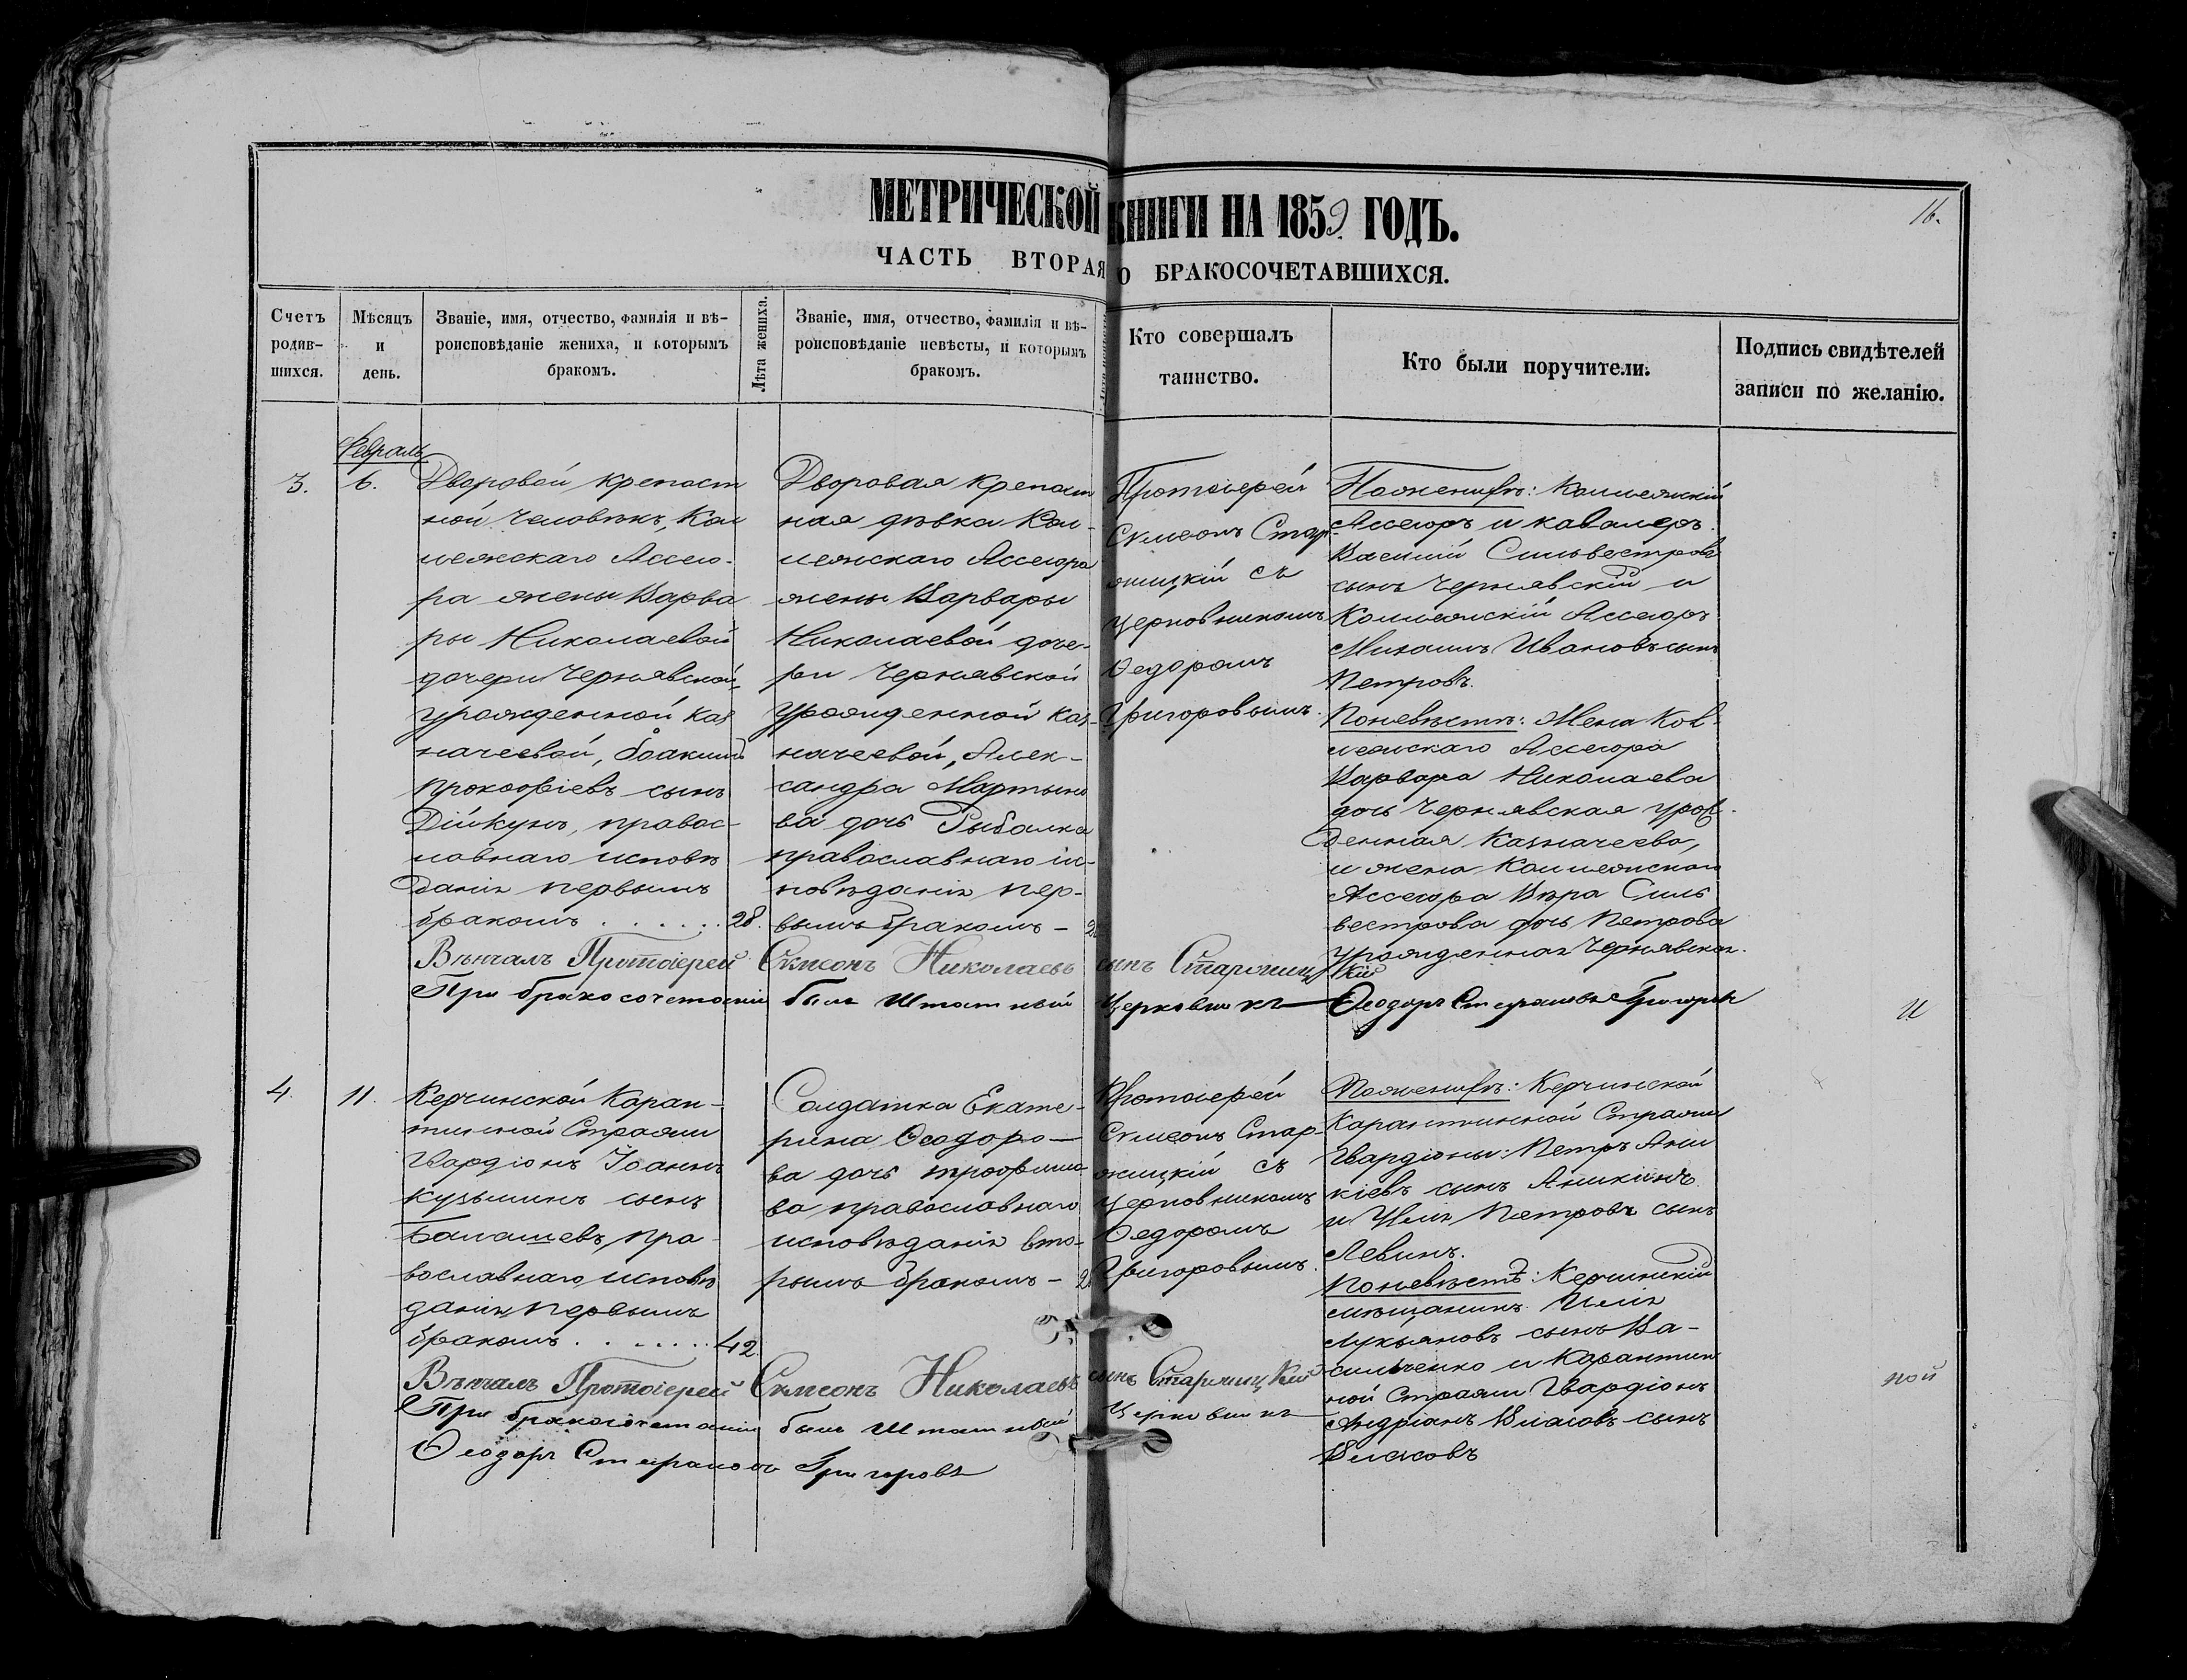 МЕТРИЧЕСКОЙ КНИГИ НА 1859 ГОДЪ.
16.
ЧАСТЬ ВТОРАЯ О БРАКОСОЧЕТАВШИХСЯ.
Счетъ
родив-
шихся.
Мѣсяцъ
и
день.
Званіе, имя, отчество, фамилія и вѣ-
роисповѣданіе жениха, и которымъ
бракомъ.
Лѣта жениха.
Званіе, имя, отчество, фамилія и вѣ-
роисповѣданіе невѣсты, и которымъ
бракомъ.
Кто совершалъ
таинство.
Кто были поручители.
Подпись свидѣтелей
записи по желанію.
Февраль
3.
6.
Дворовой крепост
ной человѣкъ, Кол
лежскаго Ассесо-
ра жены Варва
ры Николаевой
дочери Чернявской,
урожденной Каз
начеевой, Іоакимъ
Прокофіевъ сынъ
Дійкунъ, правос-
лавнаго исповѣ
данія первымъ
бракомъ . . . . . . 28.
Дворовая крепост
ная дѣвка Кол-
лежскаго Ассесора
жены Варвары
Николаевой доче-
ри Чернявской
урожденной Каз-
начеевой, Алек-
сандра Мартыно
ва дочь Рыбалка
православнаго ис-
повѣданія пер-
вымъ бракомъ -
Протоіерей
Сѵмеонъ Стар-
жицкій съ
церковникомъ
Ѳедоромъ
Григоровымъ.
По женихѣ: Коллежскій
Ассесоръ и кавалеръ
Василій Сильвестровъ
сынъ Чернявскій и
Коллежскій Ассесоръ
Михаилъ Ивановъ сынъ
Петровъ.
По невѣстѣ: Жена Кол-
лежскаго Ассесора
Варвара Николаева
дочь Чернявская урож-
денная Казначеева,
и жена Коллежскаго
Ассесора Вѣра Силь
вестрова дочь Петрова
урожденная Чернявская.
Вѣнчалъ Протоіерей Сѵмеонъ Николаевъ сынъ Старжицкій
При бракосочетаніи былъ Штатный Церковникъ Ѳеодоръ Стефановъ Григоровъ
и
4.
11.
Керчинской Каран-
тинной Стражи
Гвардіонъ Іоаннъ
Кузьминъ сынъ
Балашевъ, пра-
вославнаго исповѣ
данія, первымъ
бракомъ . . . . . . . 42.
Солдатка Екате-
рина Ѳеодоро-
ва дочь Трофимо
ва, православнаго
исповѣданія вто-
рымъ бракомъ -
Протоіерей
Сѵмеонъ Стар-
жицкій съ
церковникомъ
Ѳедоромъ
Григоровымъ.
По женихѣ: Керчинской
Карантинной Стражи
Гвардіоны: Петръ Ани
кіевъ сынъ Аникинъ
и Илія Петровъ сынъ
Левинъ.
По невѣстѣ: Керчинскій
мѣщанинъ Илія
Лукьяновъ сынъ Ва-
сильченко и Карантин
ной Стражи Гвардіонъ
Андріанъ Власовъ сынъ
Власовъ
Вѣнчалъ Протоіерей Сѵмеонъ Николаевъ сынъ Старжицкій
При бракосочетаніи былъ Штатный Церковникъ
Ѳеодоръ Стефановъ Григоровъ
ной